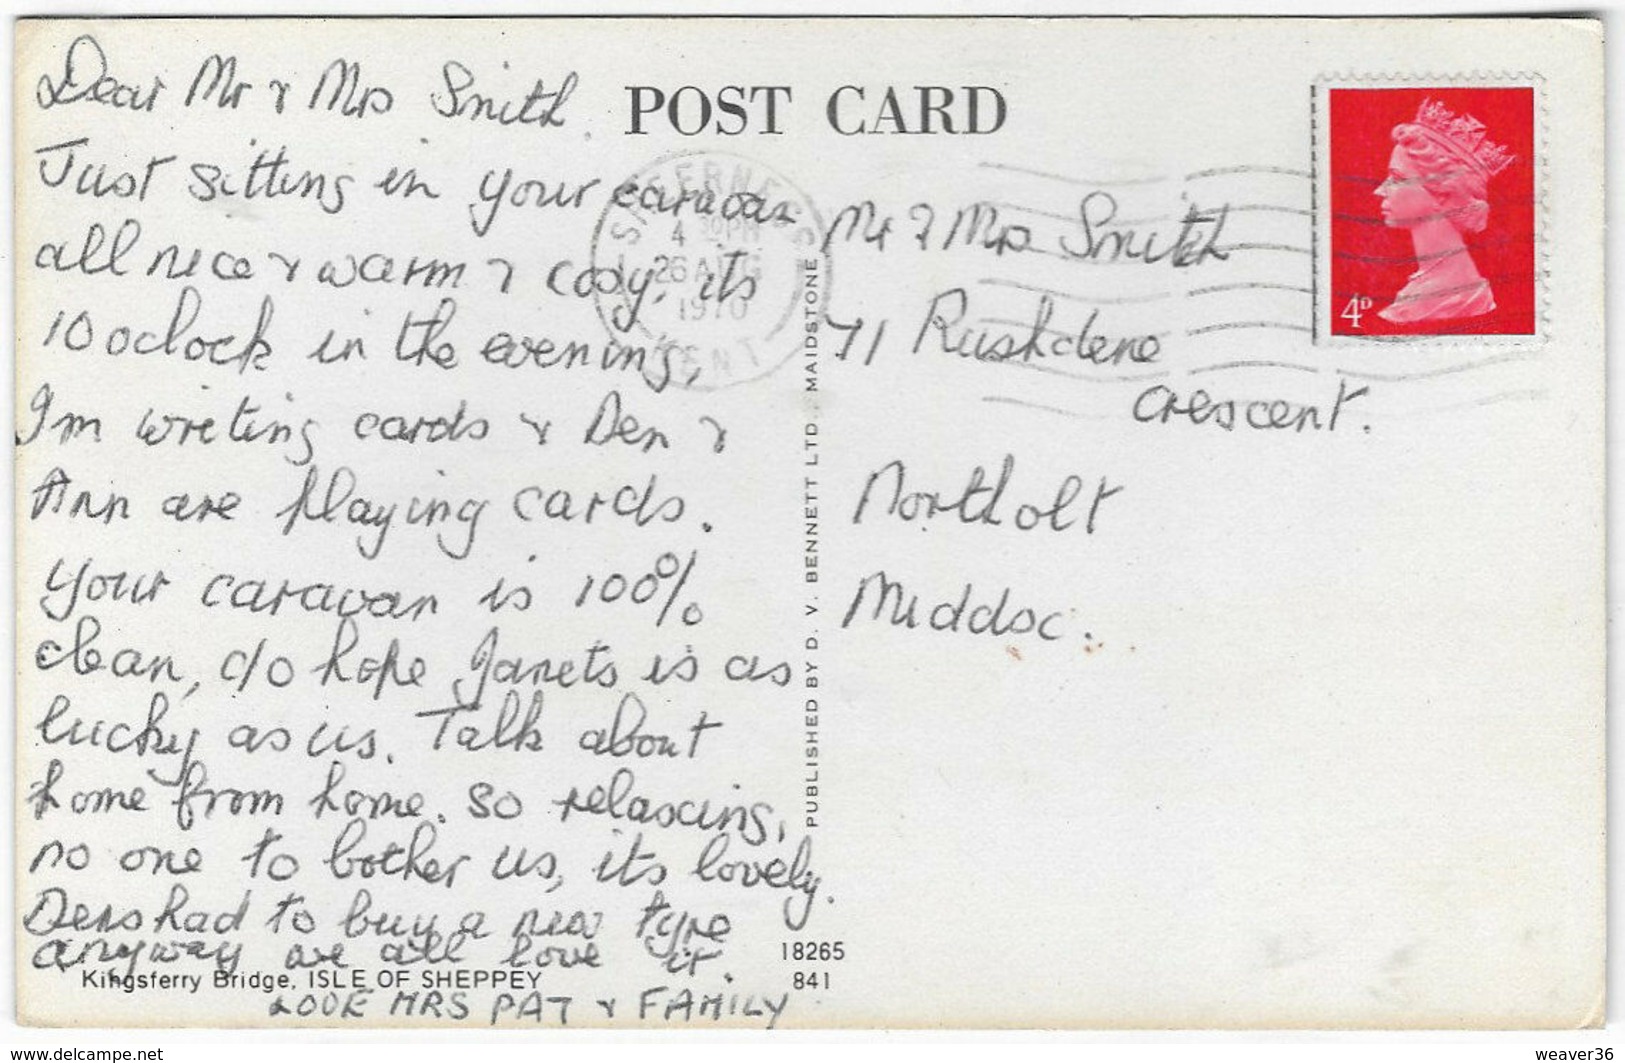 Dear Mr & Mrs Smith.
Just sitting in your caravan
all nice & warm & cosy, its
10 oclock in the evening,
I'm writing cards & Den &
Ann are playing cards.
Your caravan is 100%
clean, do hope Janets is as
lucky as us. Talk about
home from home. so relaxing,
no one to bother us, its lovely.
Dens had to buy a new tyre
anyway we all love it.
LOVE MRS PAT & FAMILY
Kingsferry Bridge, ISLE OF SHEPPEY
18265
841
POST CARD
SHEERNESS
4 30PM
26 AUG
1970
KENT
PUBLISHED BY D. V. BENNETT LTD. MAIDSTONE
4D
Mr & Mrs Smith
71 Rushdene
Crescent.
Northolt
Middsc.
delcampe.net
weaver36